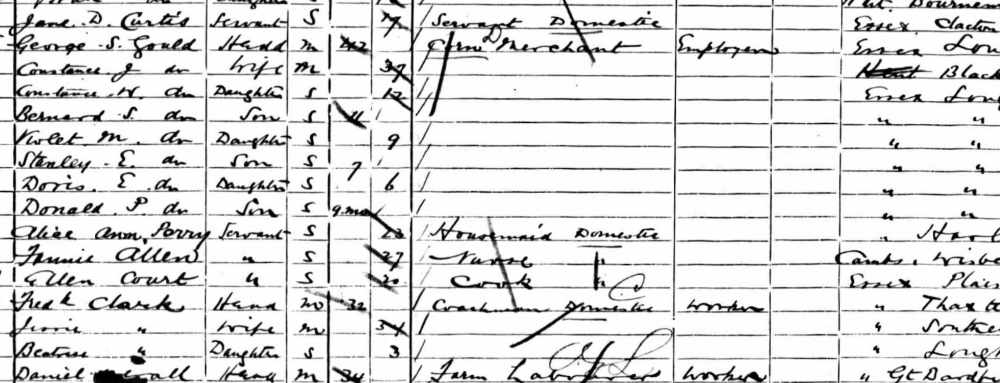 Jane D. Curtis Servant S Servant Domestic Essex Clacton
George S. Gould Head M 42 Corn Merchant Employer Essex Lou
Constance J do Wife M 37 Kent Black
Constance H. do Daughter S 12 Essex Loug
Bernard S. do Son S 11 " "
Violet M. do Daughter S 9 " "
Stanley E. do Son S 7 " "
Doris E do Daughter S 6 " "
Donald P. do Son S 9 mo " "
Alice Ann Perry Servant S 23 Housemaid Domestic "
Fannie Allen " S 27 Nurse " Cambs. Wisbe
Ellen Court " S 20 Cook " Essex Plais
Fredk Clark Head M 32 Coachman Domestic Worker " Thaxte
Jessie " Wife M 34 "
Beatrice " Daughter S 3 " Lough
Daniel Head M 34 Farm Labourer Worker " Gt Bardf